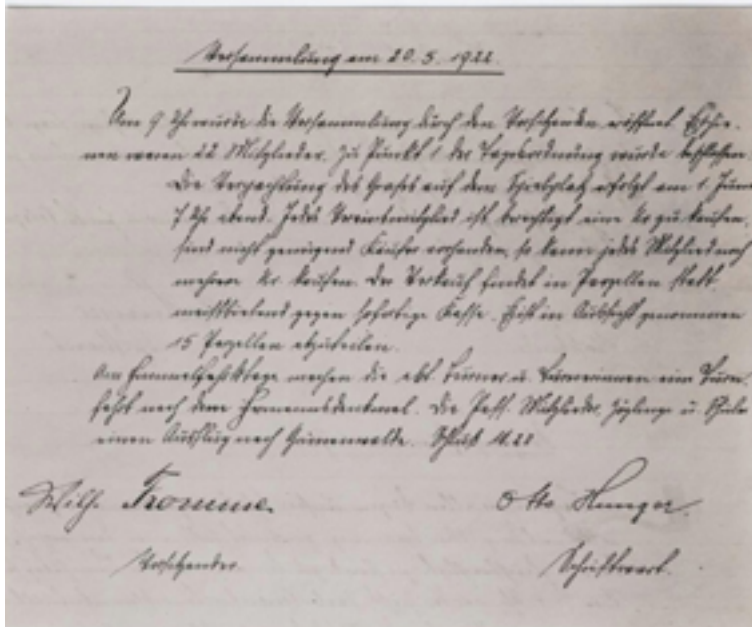 Versammlung am 20. 5. 1922.
Um 9 Uhr wurde die Versammlung durch den Vorsitzenden eröffnet. Erschie-
nen waren 22 Mitglieder. Zu Punkt 1 der Tagesordnung wurde beschlossen.
Die Verpachtung des Grases auf dem Spielplatz erfolgt am 1. Juni
7 Uhr abend. Jedes Vereinsmitglied ist berechtigt eine Nr zu kaufen,
sind nicht genügend Käufer vorhanden, so kann jedes Mitglied noch
mehrere Nr. kaufen. Der Verkauf findet in Parzellen statt
meistbietend gegen sofortige Kasse. Es ist in Aussicht genommen
15 Parzellen abzuteilen.
Am Himmelfahrtstage machen die akt. Turner u. Turnerinnen eine Turn-
fahrt nach dem Hermannsdenkmal. Die Pass. Mitglieder, Zöglinge u. Schüler
einen Ausflug nach Grünenwalde. Schluß 11.20
Wilh. Fromme. Otto
Vorsitzender. Schriftwart.